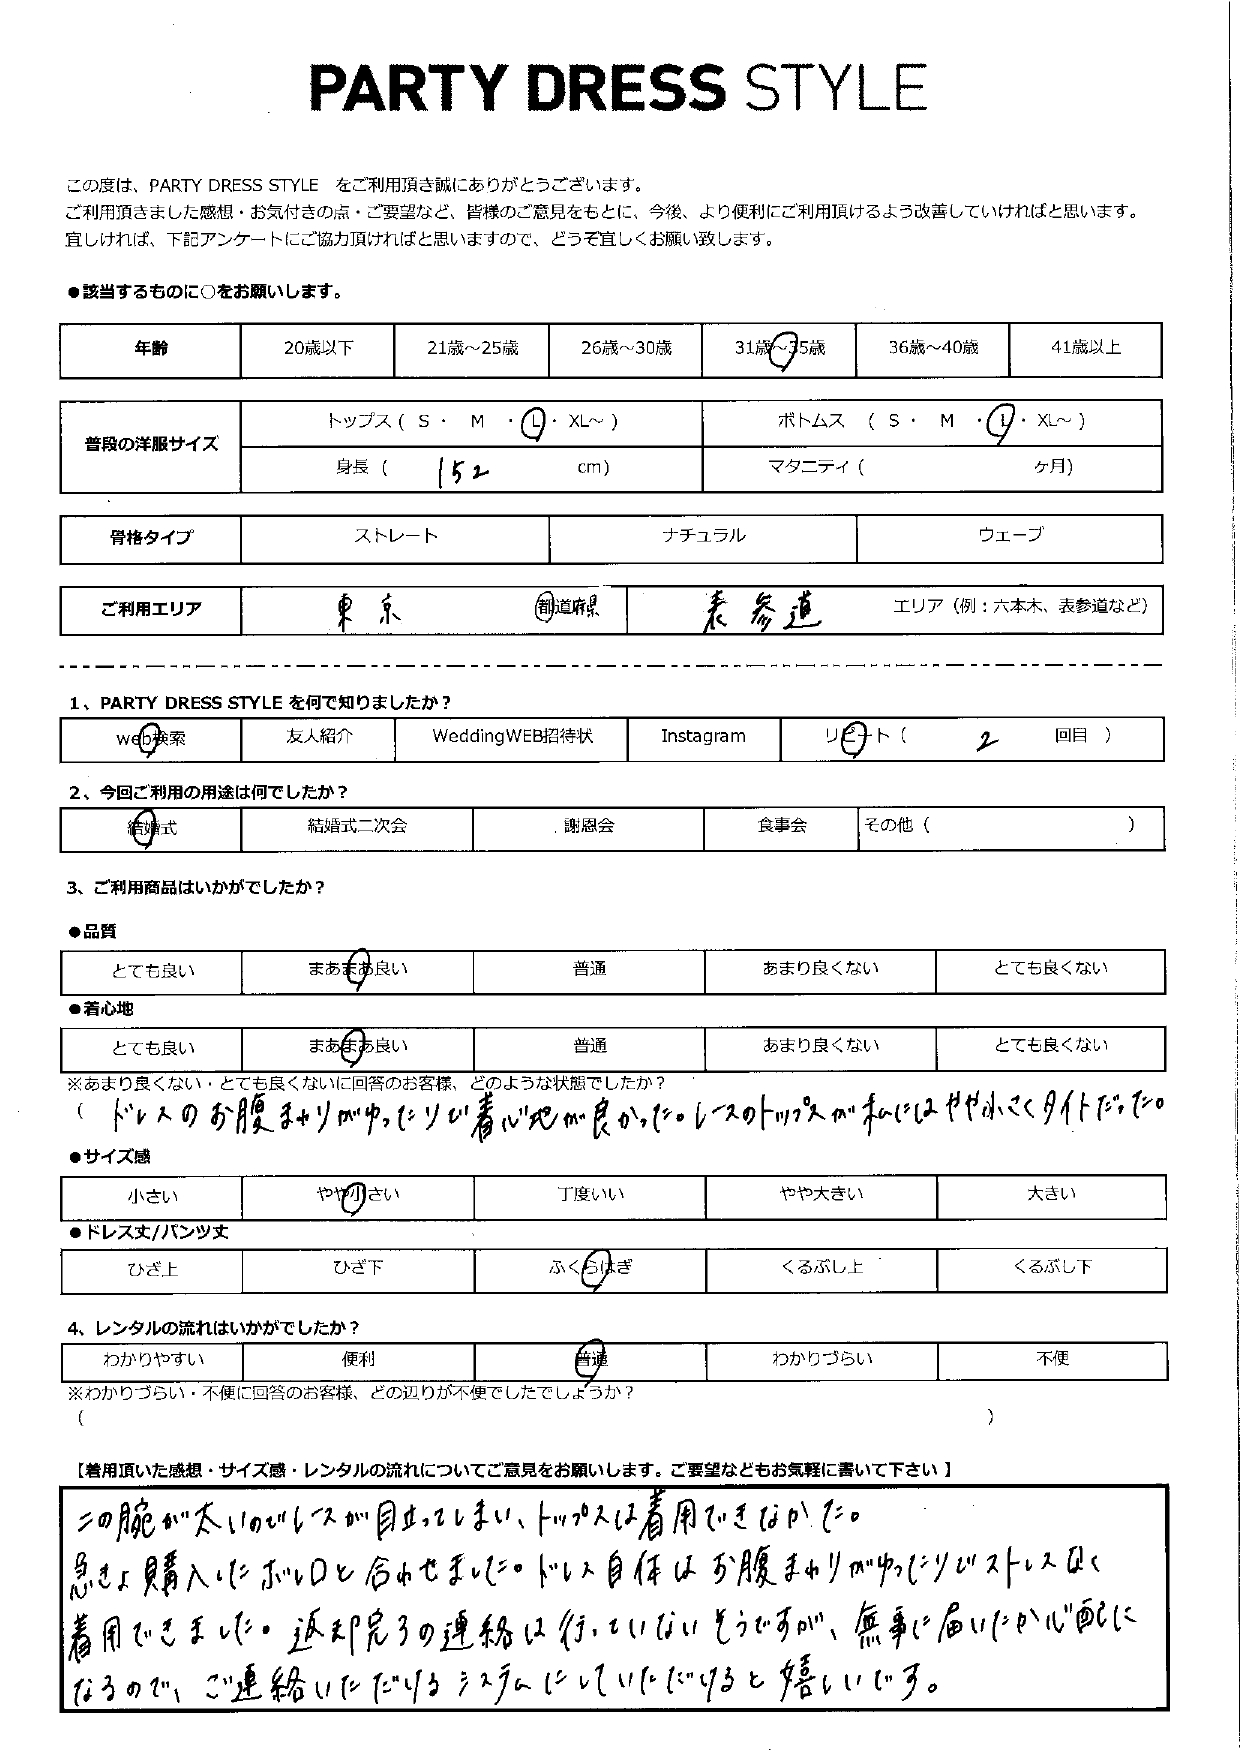 PARTY DRESS STYLE
この度は、PARTY DRESS STYLE をご利用頂き誠にありがとうございます。
ご利用頂きました感想・お気付きの点・ご要望など、皆様のご意見をもとに、今後、より便利にご利用頂けるよう改善していければと思います。
宜しければ、下記アンケートにご協力頂ければと思いますので、どうぞ宜しくお願い致します。
●該当するものに○をお願いします。
年齢 20歳以下 21歳～25歳 26歳～30歳 31歳～35歳 36歳～40歳 41歳以上
普段の洋服サイズ トップス ( S ・ M ・ L ・ XL～ ) ボトムス ( S ・ M ・ L ・ XL～ )
身長 ( 152 cm) マタニティ ( ケ月)
骨格タイプ ストレート ナチュラル ウェーブ
ご利用エリア 東京 都道府県 表参道 エリア（例：六本木、表参道など）
1、PARTY DRESS STYLE を何で知りましたか？
web検索 友人紹介 WeddingWEB招待状 Instagram リピート ( 2 回目 )
2、今回ご利用の用途は何でしたか？
結婚式 結婚式二次会 謝恩会 食事会 その他 ( )
3、ご利用商品はいかがでしたか？
●品質
とても良い まあまあ良い 普通 あまり良くない とても良くない
●着心地
とても良い まあまあ良い 普通 あまり良くない とても良くない
※あまり良くない・とても良くないに回答のお客様、どのような状態でしたか？
( ドレスのお腹まわりがゆったりで着心地が良かった。レースのトップスが私にはやや小さくタイトだった。
●サイズ感
小さい やや小さい 丁度いい やや大きい 大きい
●ドレス丈/パンツ丈
ひざ上 ひざ下 ふくらはぎ くるぶし上 くるぶし下
4、レンタルの流れはいかがでしたか？
わかりやすい 便利 普通 わかりづらい 不便
※わかりづらい・不便に回答のお客様、どの辺りが不便でしたでしょうか？
( )
【着用頂いた感想・サイズ感・レンタルの流れについてご意見をお願いします。ご要望などもお気軽に書いて下さい 】
二の腕が太いのでレースが目立ってしまい、トップスは着用できなかた。
急きょ購入したボレロと合わせました。ドレス自体はお腹まわりがゆったりでストレスなく
着用できました。返却完了の連絡は行っていないそうですが、無事に届いたか心配に
なるので、ご連絡いただけるシステムにしていただけると嬉しいです。